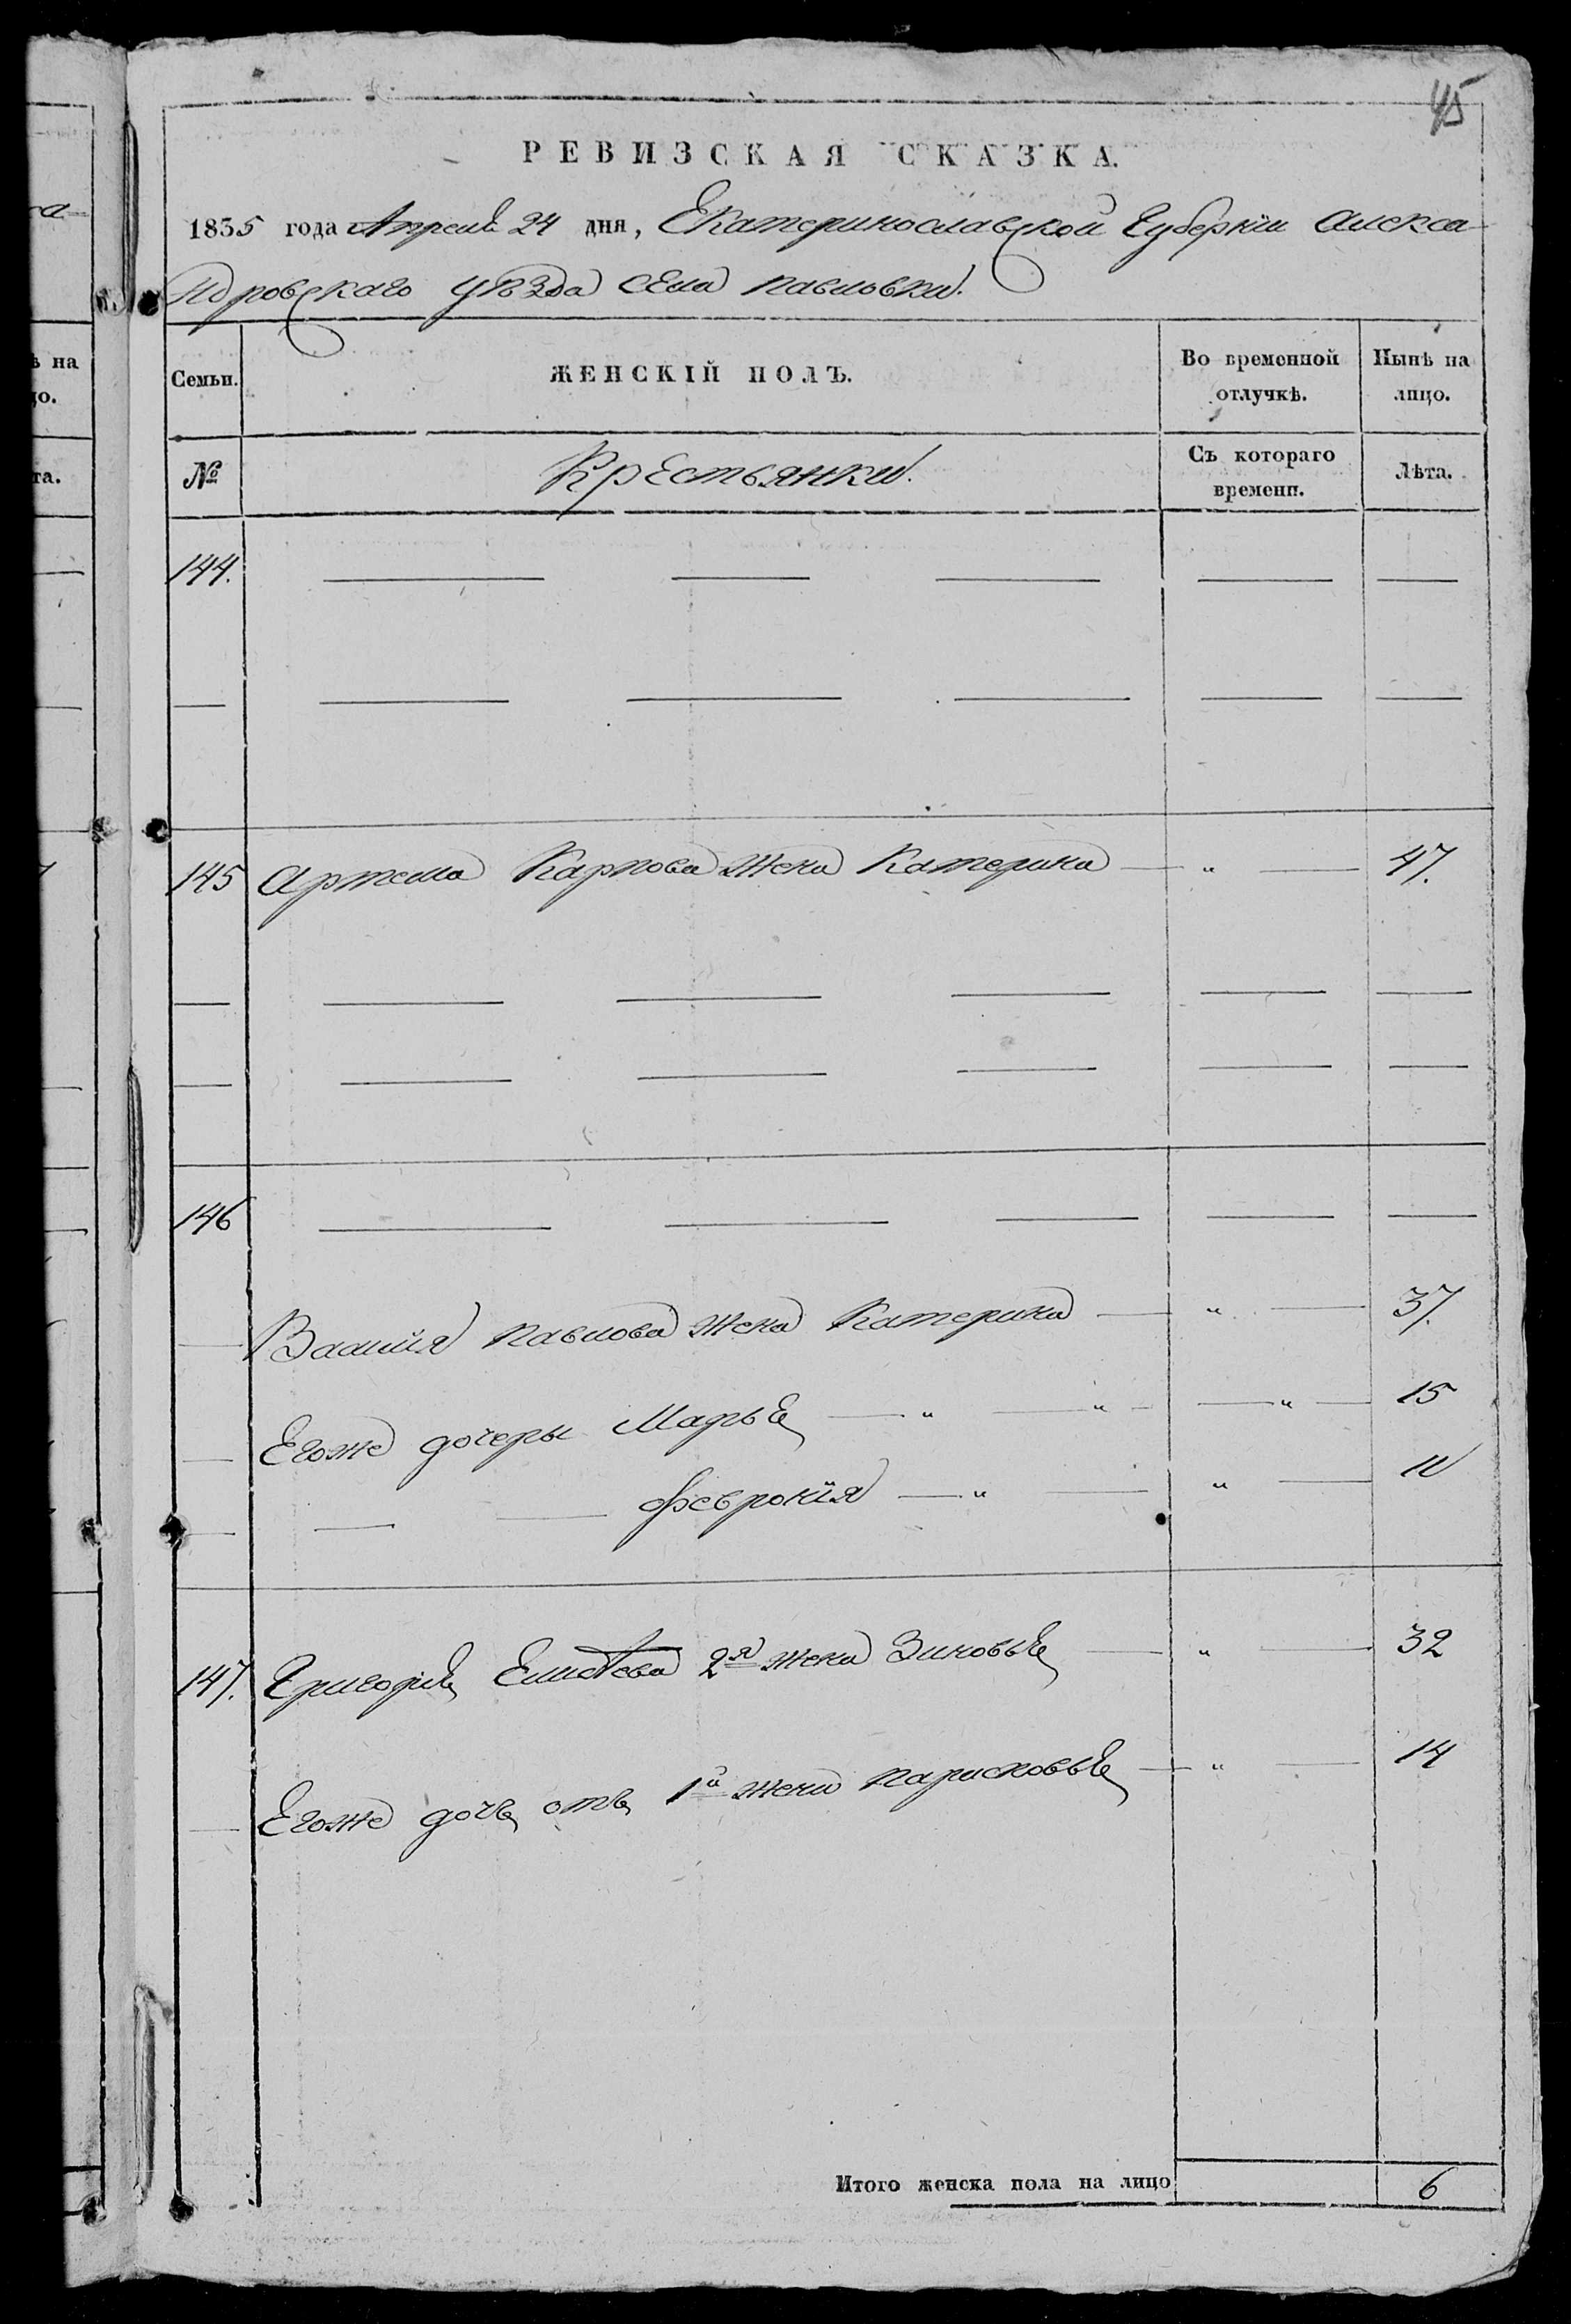 45
РЕВИЗСКАЯ СКАЗКА.
1835 года Апреля 24 дня, Екатеринославской Губернiи Алекса-
ндровскаго уѣзда села Павловки.
Семьи. ЖЕНСКIЙ ПОЛЪ. Во временной отлучкѣ. Нынѣ на лицо.
№ Крестьянки. Съ котораго времени. Лѣта.
144.
145 Артема Карпова жена Катерина — " — 47.
146
Васи́лiя Павлова жена Катерина — " — 37.
Егоже дочеры Марья — " — " — " — 15
Феврония — " — " — 11
147. Григорiя Елисѣева 2я жена Зиновья — " — 32
Егоже дочь отъ 1й жени Парасковья — " — 14
Итого женска пола на лицо 6